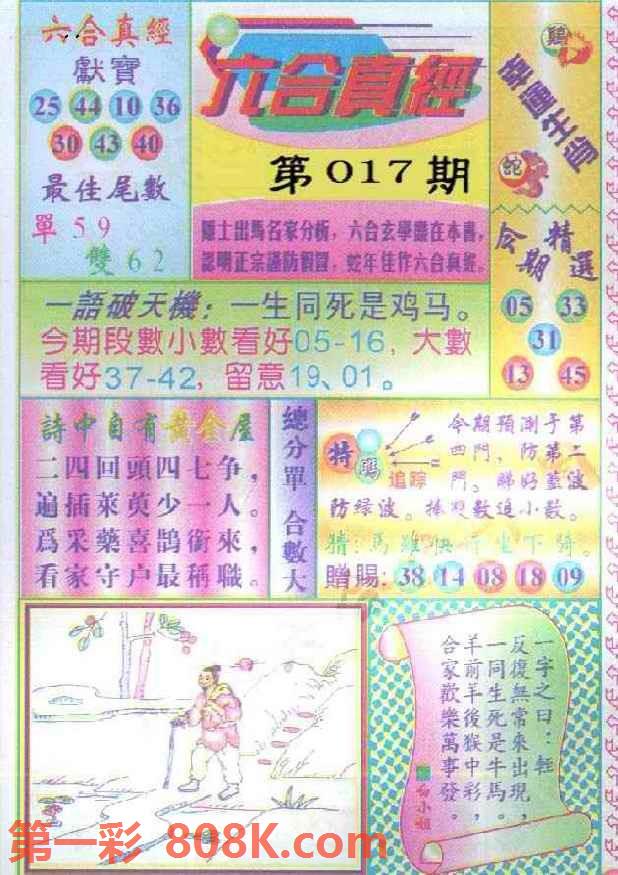 六合真經
獻寶
25 44 10 36
30 43 40
最佳尾數
單 5 9
雙 6 2
六合真經
第017期
隱士出馬名家分析，六合玄學盡在本書，
認明正宗謹防假冒，蛇年佳作六合真經。
幸運生肖
鷄
蛇
今期精選
05 33
31
13 45
一語破天機：一生同死是鸡马。
今期段數小數看好05-16，大數
看好37-42，留意19、01。
詩中自有黃金屋
二四回頭四七争，
遍插萊茰少一人。
爲采藥喜鵲銜來，
看家守户最稱職。
總分單 合數大
特碼
追踪
今期預測于第
四門，防第二
門。睇好藍波
防绿波。
數追小數。
猜：馬雖快行坐下騎。
贈賜：38 14 08 18 09
一字之曰：輕
反復無常來出現，
一同生死是牛馬。
羊前羊後猴中彩，
合家歡樂萬事發。
白小姐
第一彩 808K.com